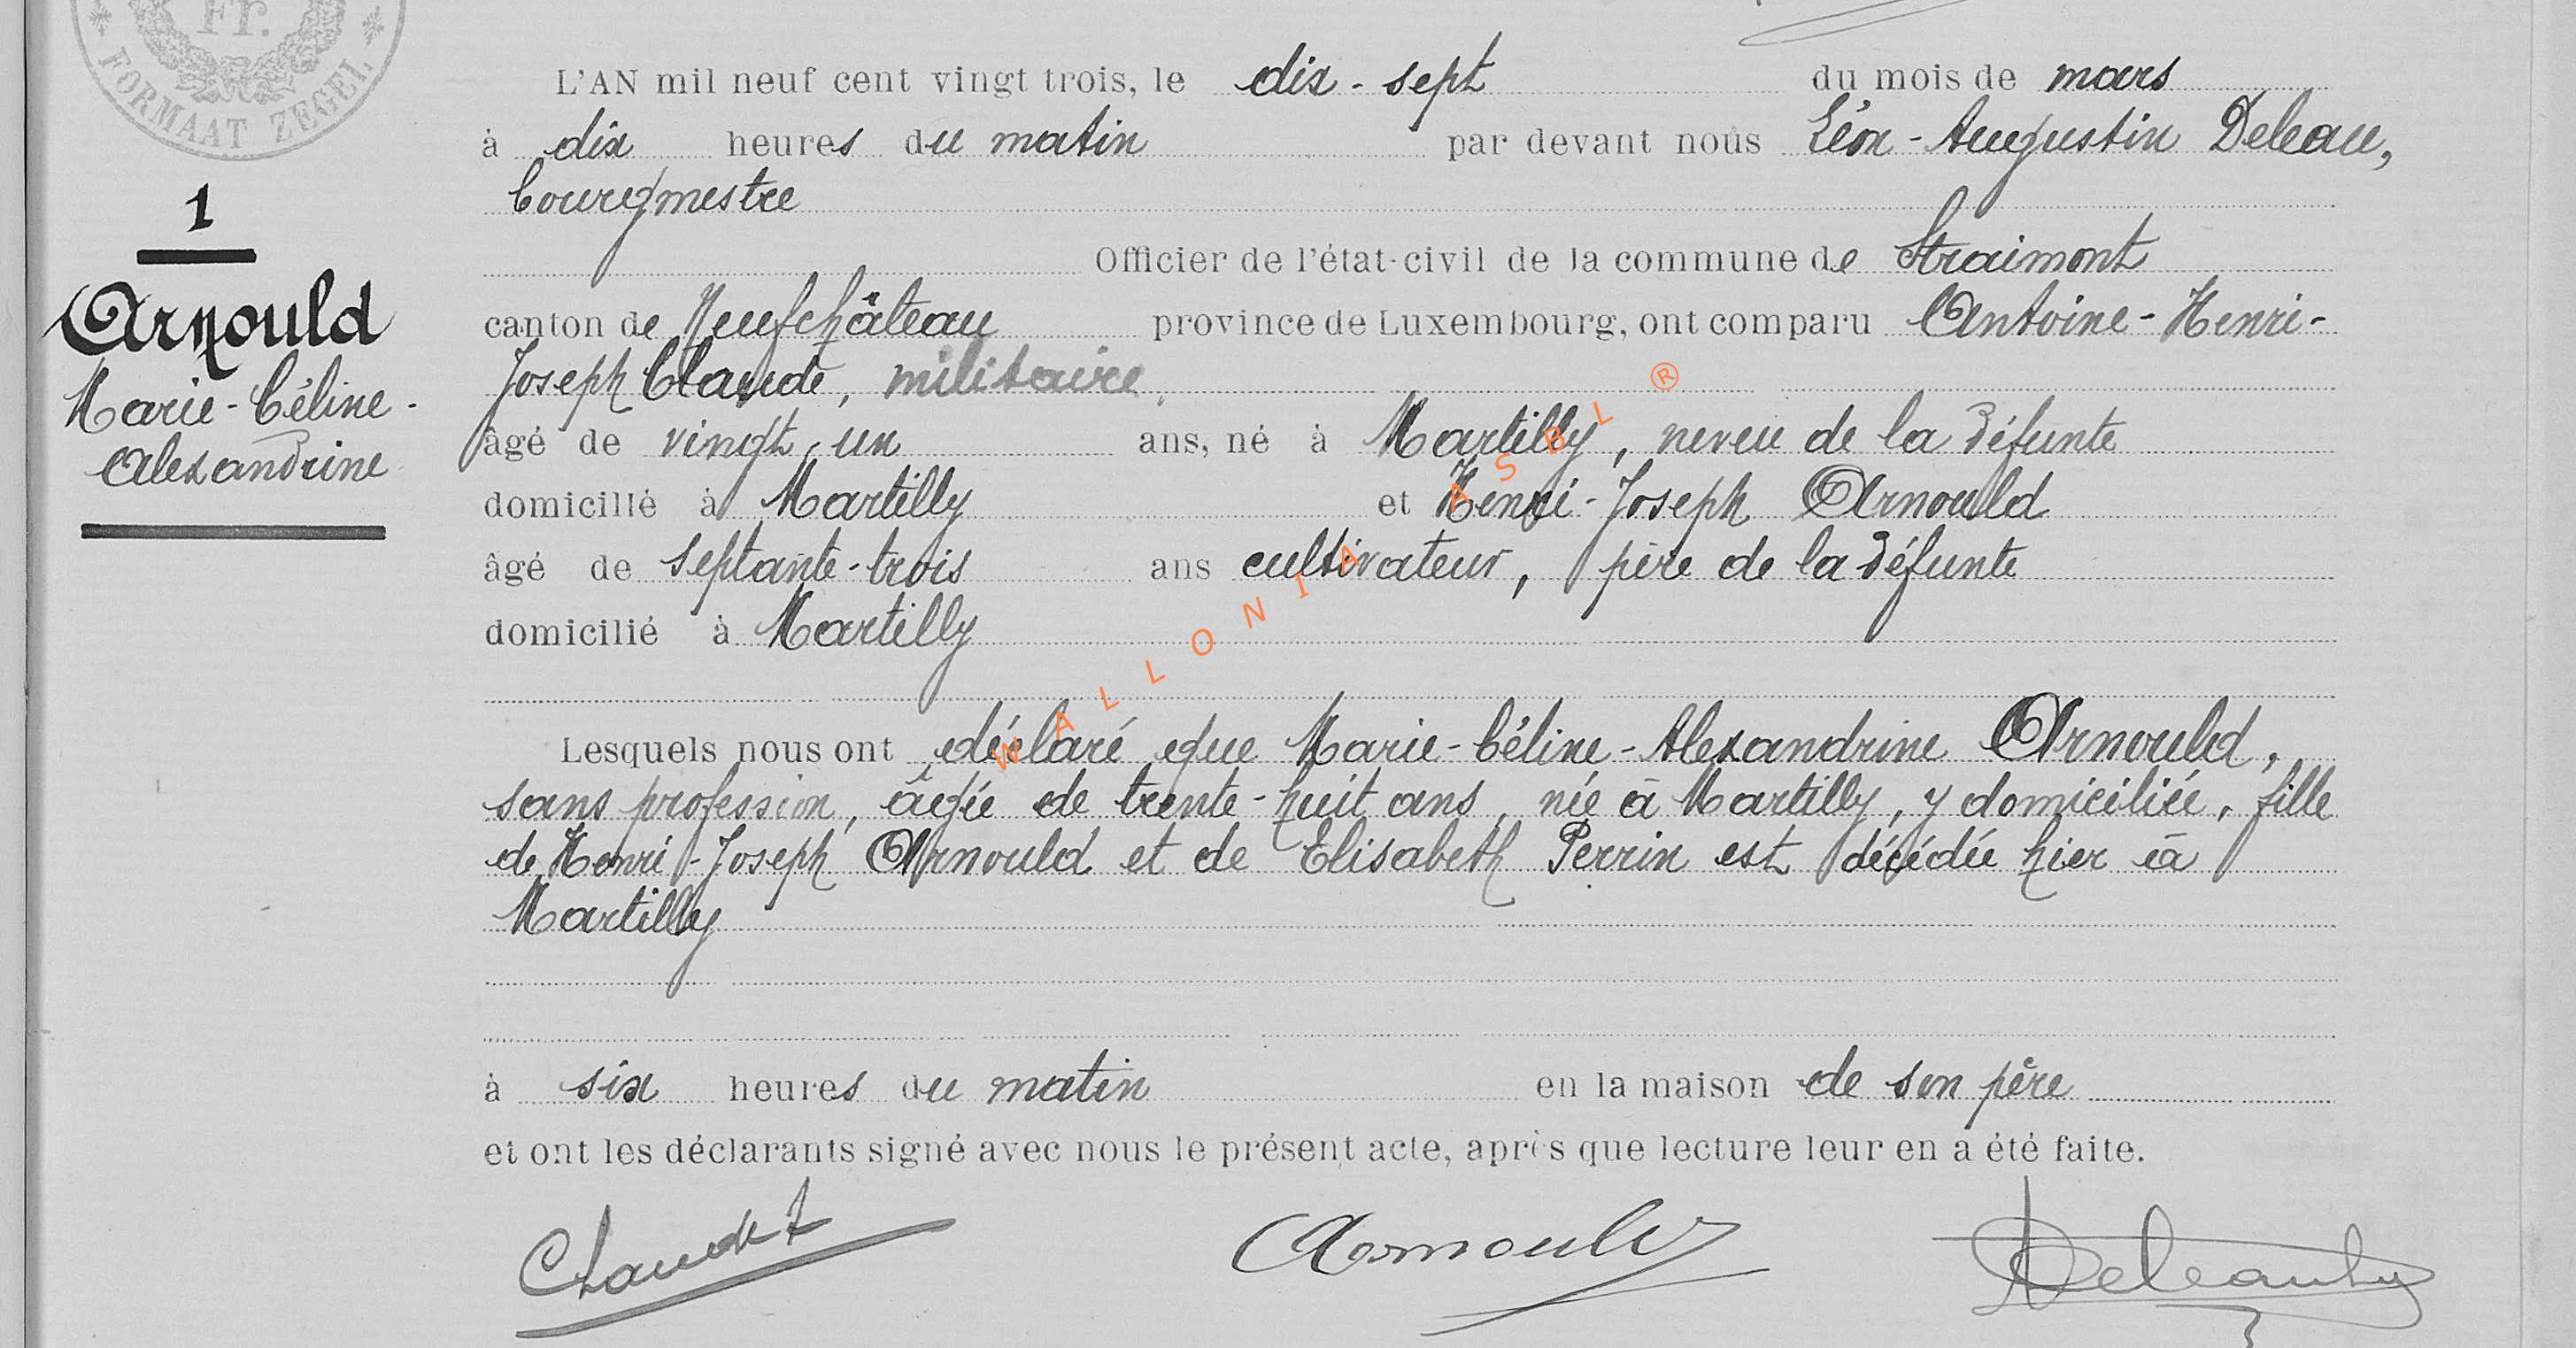 Fr.
FORMAAT ZEGEL
L'AN mil neuf cent vingt trois, le dix-sept du mois de mars
à dix heures du matin par devant nous Léon-Augustin Deleau,
bourgmestre
1
Officier de l'état-civil de la commune de Straimont
Arnould
canton de Neufchâteau province de Luxembourg, ont comparu Antoine-Henri-
Marie-Céline-
Joseph Claude, militaire,
Alexandrine
âgé de vingt-un ans, né à Martilly, neveu de la défunte
domicilié à Martilly et Henri-Joseph Arnould
âgé de septante-trois ans cultivateur, père de la défunte
domicilié à Martilly
Lesquels nous ont déclaré que Marie-Céline-Alexandrine Arnould,
sans profession, âgée de trente-huit ans, née à Martilly, y domiciliée, fille
de Henri-Joseph Arnould et de Elisabeth Perrin est décédée hier à
Martilly
à six heures du matin en la maison de son père
et ont les déclarants signé avec nous le présent acte, après que lecture leur en a été faite.
Arnould
WALLONIA ASBL ®